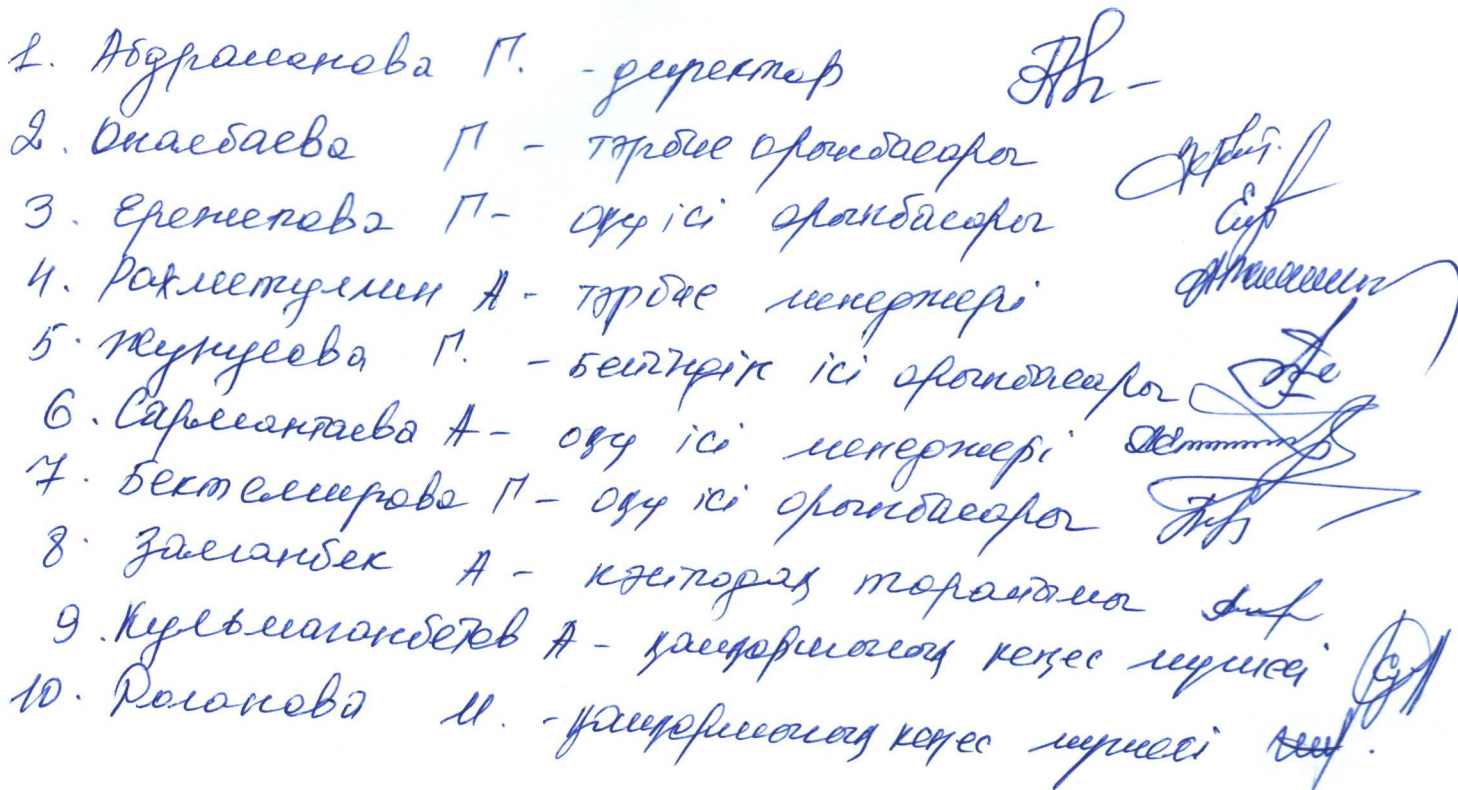 1. Абдраманова Г. - директор
2. Окасбаева Г - тәрбие орынбасары
3. Ережепова Г - оқу ісі орынбасары
4. Рахметуллин А - тәрбие менеджері
5. Жунусова Г. - бейіндік ісі орынбасары
6. Сармантаева А - оқу ісі менеджері
7. Бектемирова Г - оқу ісі орынбасары
8. Залганбек А - кәсіподақ төрайымы
9. Кульмаганбетов А - қамқоршылық кеңес мүшесі
10. Романова М. - қамқоршылық кеңес мүшесі